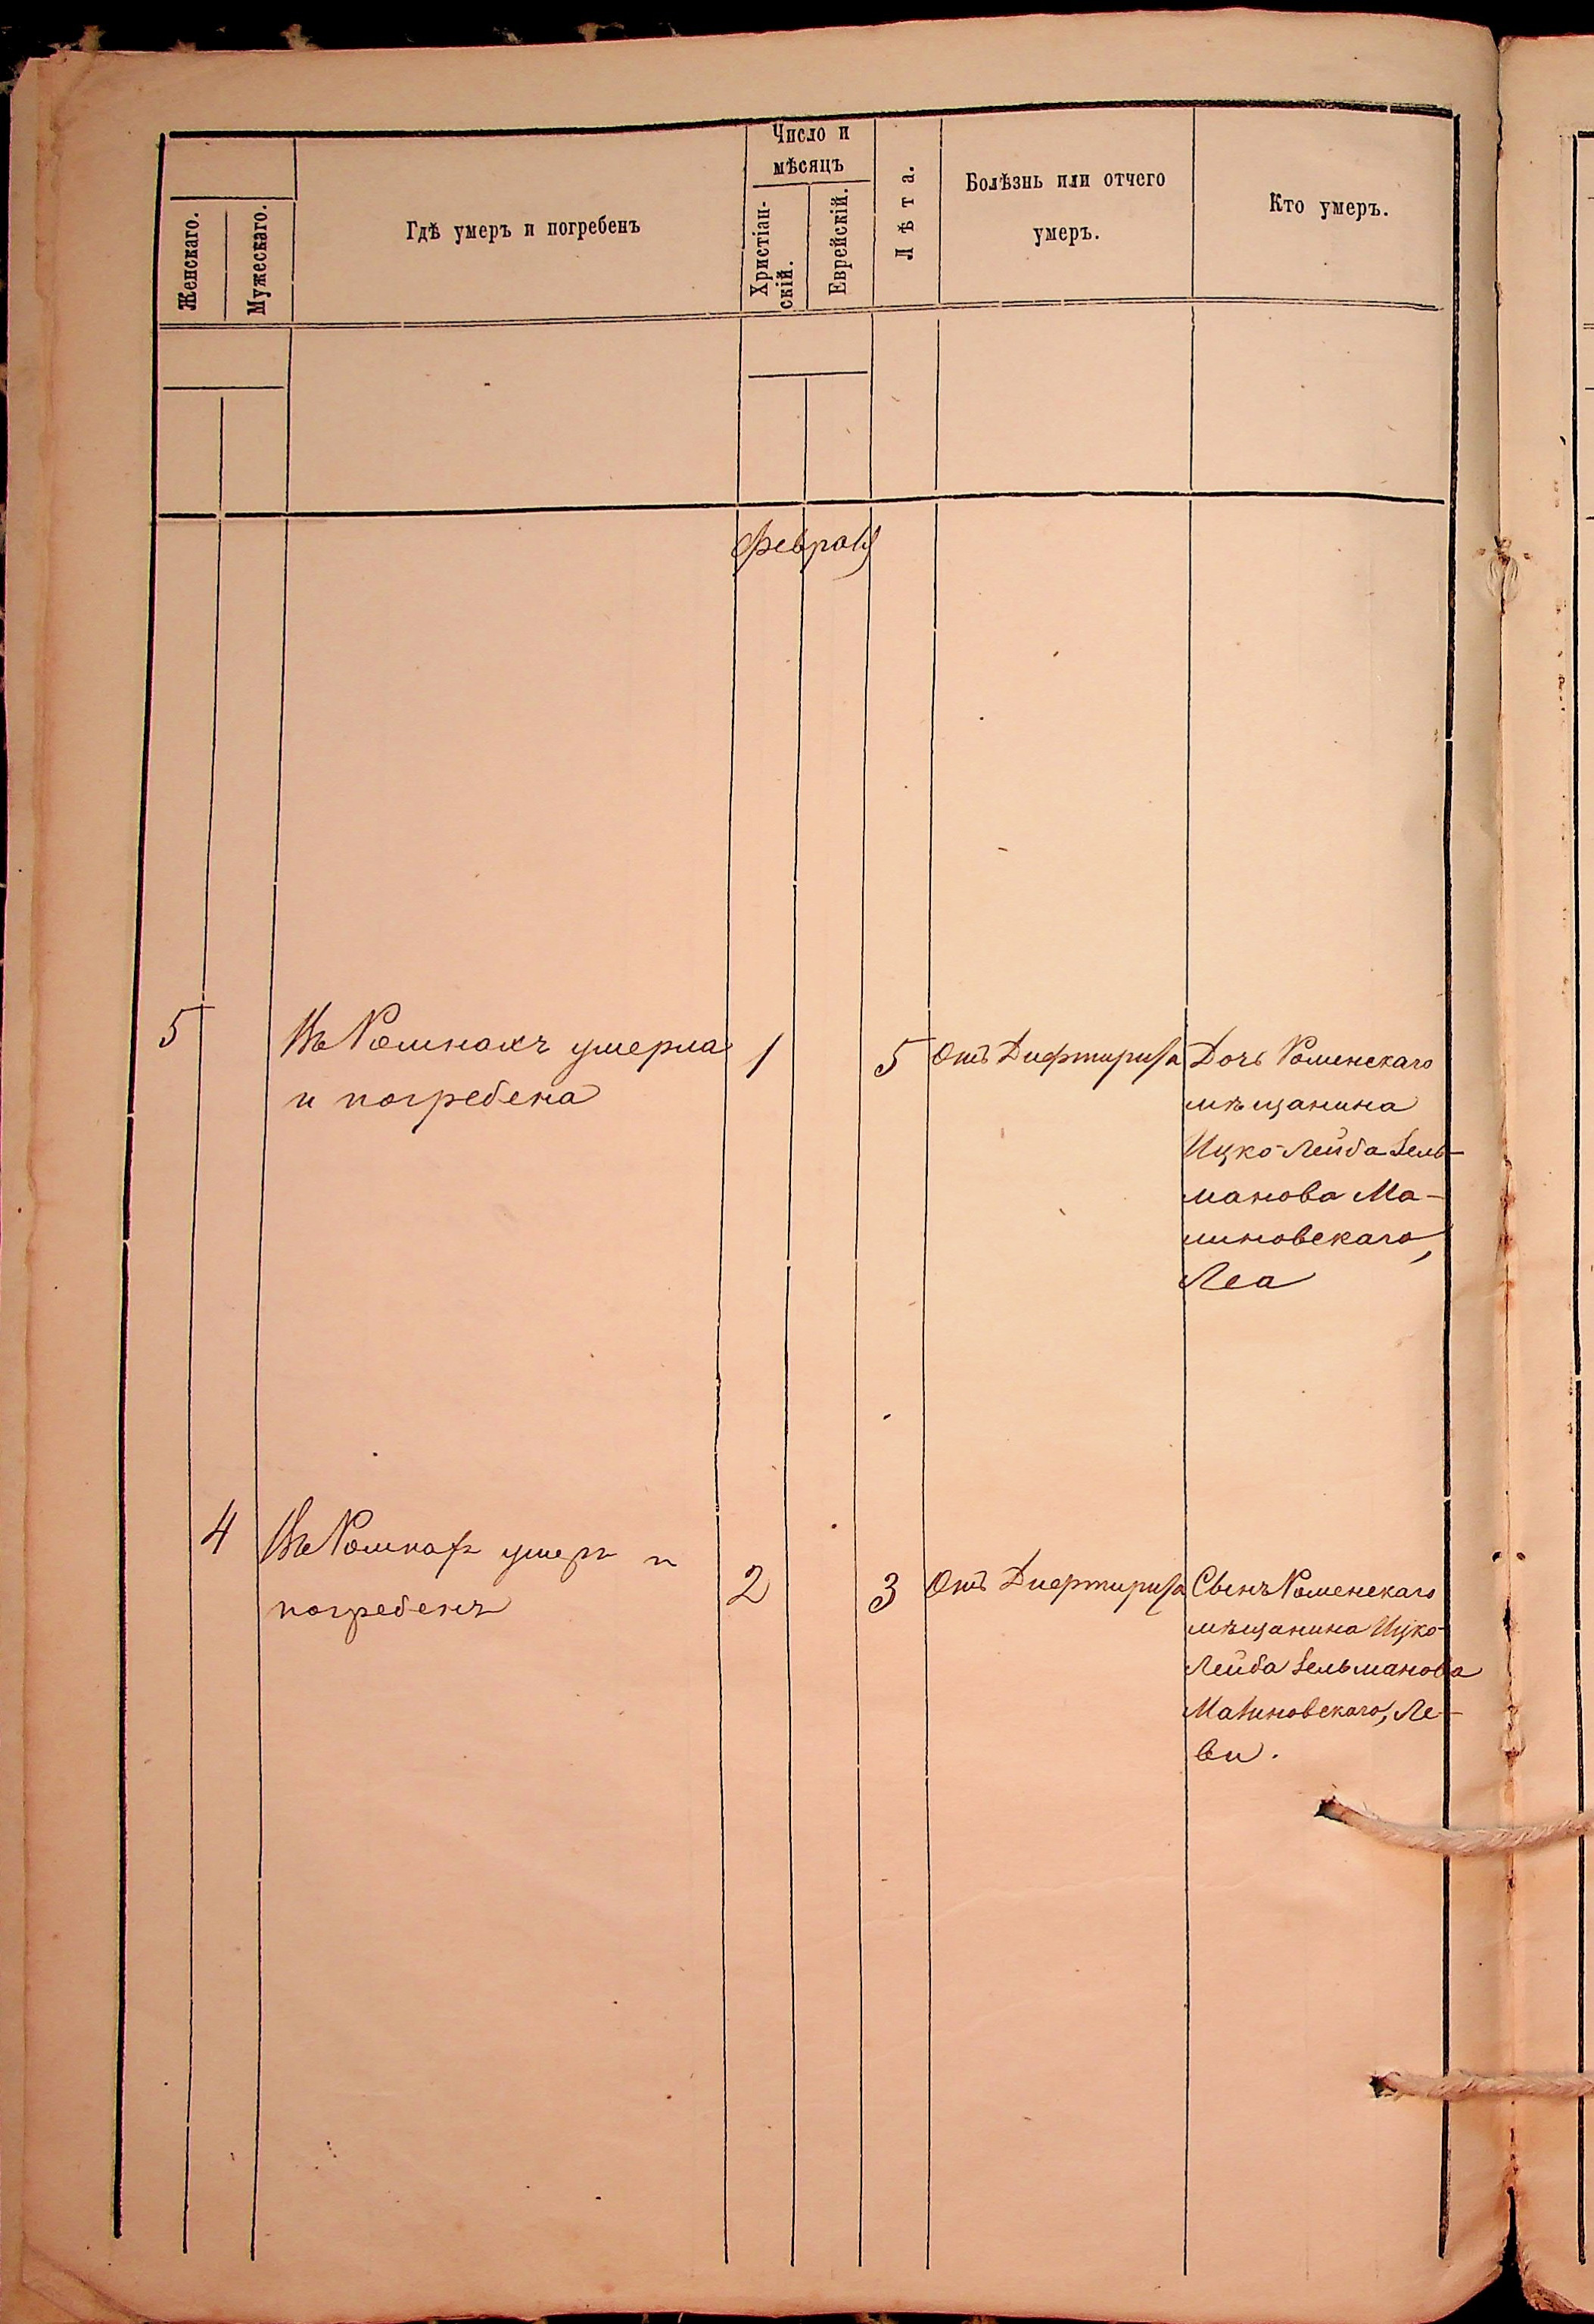 Женскаго.
Мужескаго.
Гдѣ умеръ и погребенъ
Число и
мѣсяцъ
Христіан-
скій.
Еврейскій.
Лѣта.
Болѣзнь или отчего
умеръ.
Кто умеръ.
Февраля
5
Въ Ромнахъ умерла
и погребена
1
5
Отъ Дифтирита
Дочь Роменскаго
мѣщанина
Ицко-Лейба Зель-
манова Ма-
линовскаго,
Леа
4
Въ Ромнахъ умеръ и
погребенъ
2
3
Отъ Дифтирита
Сынъ Роменскаго
мѣщанина Ицко-
Лейба Зельманова
Малиновскаго, Ле-
ви.